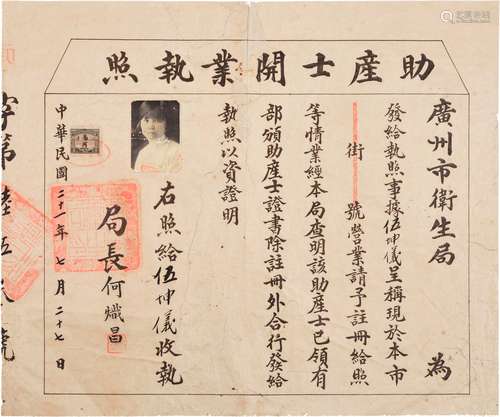 助產士開業執照
廣州市衛生局 為
發給執照事據伍坤儀呈稱現於本市
街 號營業請予註冊給照
等情業經本局查明該助產士已領有
部頒助產士證書除註冊外合行發給
執照以資證明
右照給伍坤儀收執
局長何熾昌
中華民國二十一年七月二十七日
字第 陸伍 號